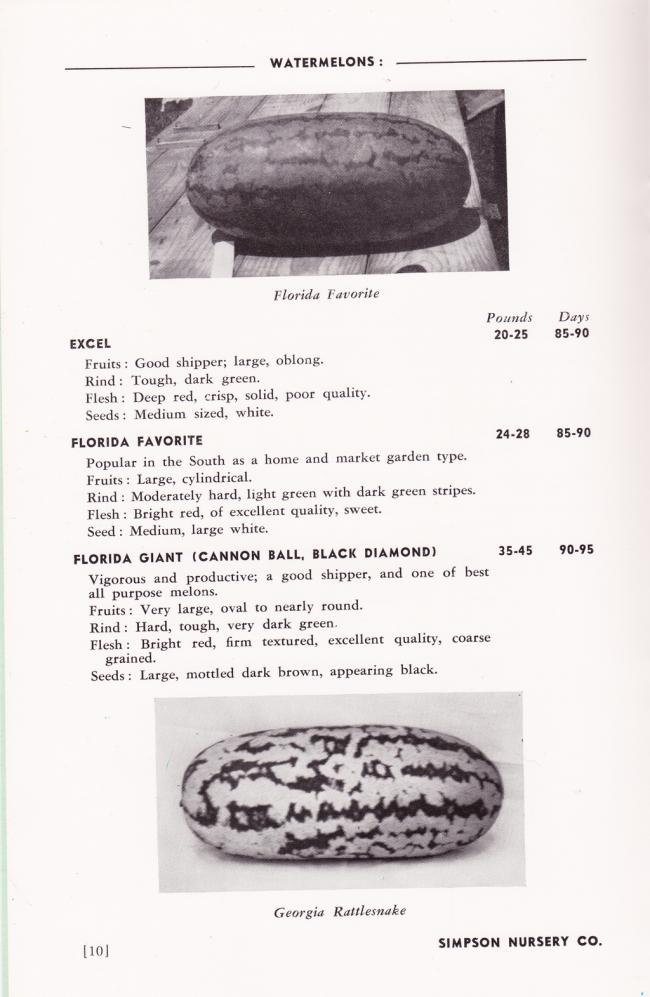 WATERMELONS:
Florida Favorite
Pounds Days
EXCEL 20-25 85-90
Fruits: Good shipper; large, oblong.
Rind: Tough, dark green.
Flesh: Deep red, crisp, solid, poor quality.
Seeds: Medium sized, white.
FLORIDA FAVORITE 24-28 85-90
Popular in the South as a home and market garden type.
Fruits: Large, cylindrical.
Rind: Moderately hard, light green with dark green stripes.
Flesh: Bright red, of excellent quality, sweet.
Seed: Medium, large white.
FLORIDA GIANT (CANNON BALL, BLACK DIAMOND) 35-45 90-95
Vigorous and productive; a good shipper, and one of best
all purpose melons.
Fruits: Very large, oval to nearly round.
Rind: Hard, tough, very dark green.
Flesh: Bright red, firm textured, excellent quality, coarse
grained.
Seeds: Large, mottled dark brown, appearing black.
Georgia Rattlesnake
[10] SIMPSON NURSERY CO.